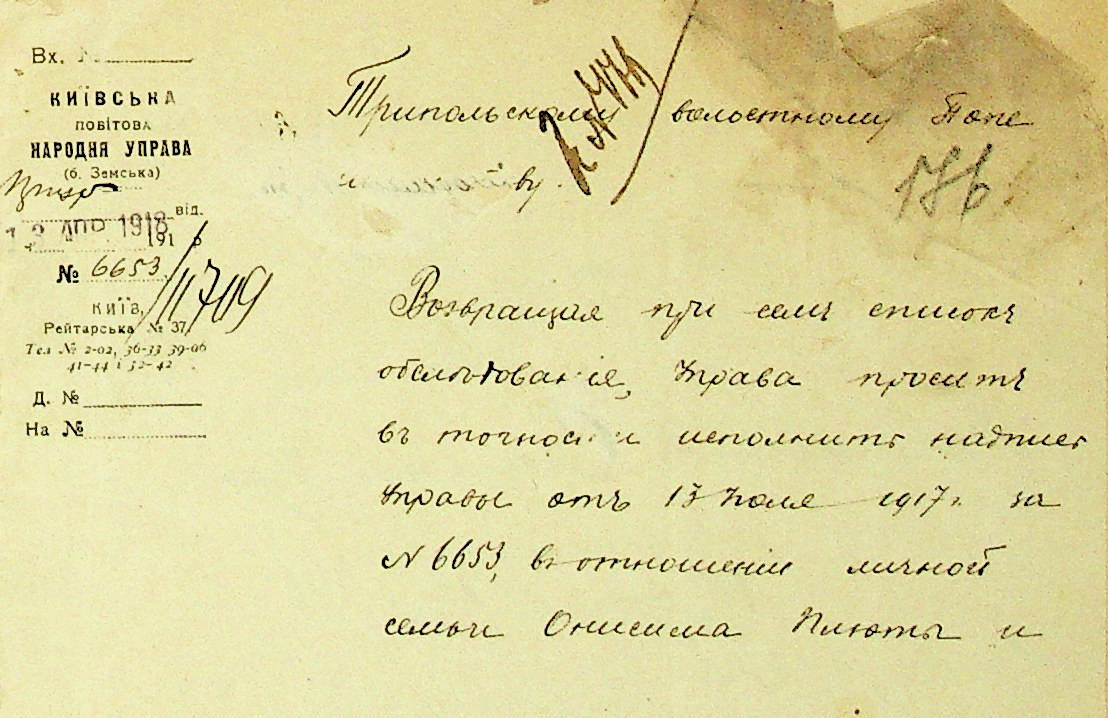 Вх.
КИЇВСЬКА
ПОВІТОВА
НАРОДНЯ УПРАВА
(б. Земська)
від.
1918
191
№ 6653/11709
КИЇВ,
Рейтарська № 37
Тел № 2-02, 36-33 39-06
41-44 і 52-42
Д. №
На №
Трипольскому волостному Попе
ву.
176
Возвращая при семъ списокъ
обслѣдованія, Управа проситъ
въ точности исполнить надпись
Управы отъ 13 Іюля 1917 г. за
№ 6653, въ отношеніи личной
семьи Онисима Плюты и